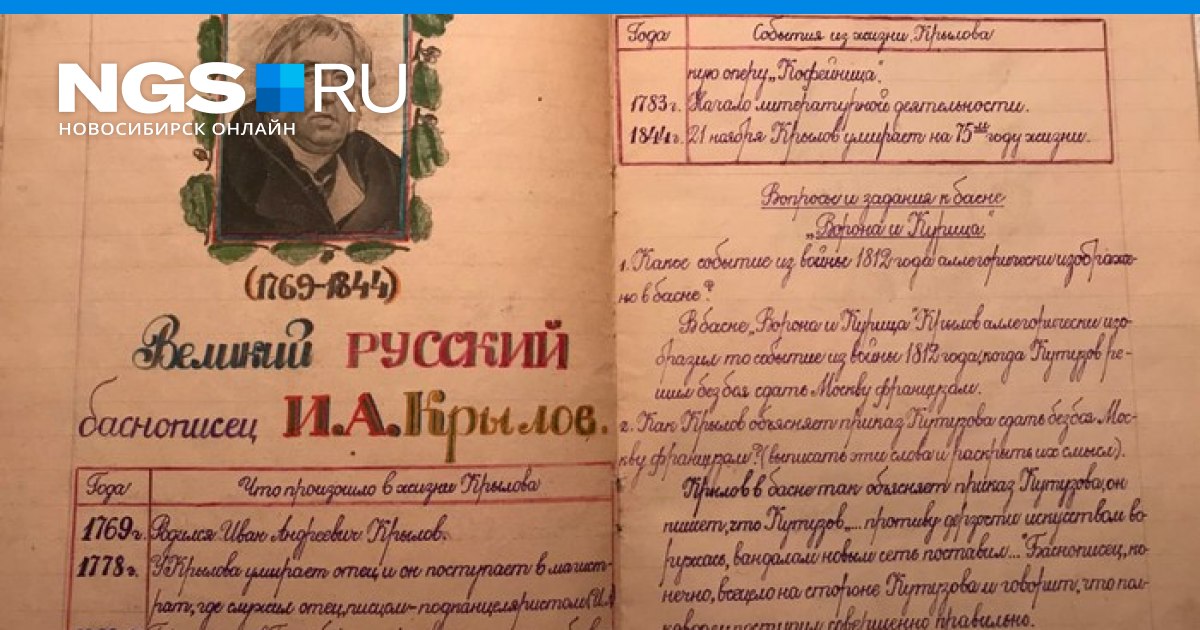 NGS RU
НОВОСИБИРСК ОНЛАЙН
(1769-1844)
Великий РУССКИЙ
баснописец И.А. Крылов.
Года Что произошло в жизни Крылова
1769 г. Родился Иван Андреевич Крылов.
1778 г. У Крылова умирает отец, и он поступает в магист-
рат, где служил отец, писцом-подканцеляристом
Года События из жизни Крылова
ную оперу „Кофейница".
1783 г. Начало литературной деятельности.
1844 г. 21 ноября Крылов умирает на 75ом году жизни.
Вопросы и задания к басне
„Ворона и Курица".
1. Какое событие из войны 1812 года аллегорически изображе-
но в басне?
В басне „Ворона и Курица" Крылов аллегорически изо-
бразил то событие из войны 1812 года, когда Кутузов ре-
шил без боя сдать Москву французам.
2. Как Крылов объясняет приказ Кутузова сдать без боя Мос-
кву французам? (выписать эти слова и раскрыть их смысл).
Крылов в басне так объясняет приказ Кутузова, он
пишет, что Кутузов „... противу дерзости искусством во-
ружась, вандалам новым сеть поставил..." Баснописец, ко-
нечно, всецело на стороне Кутузова и говорит, что пол-
ководец поступил совершенно правильно.